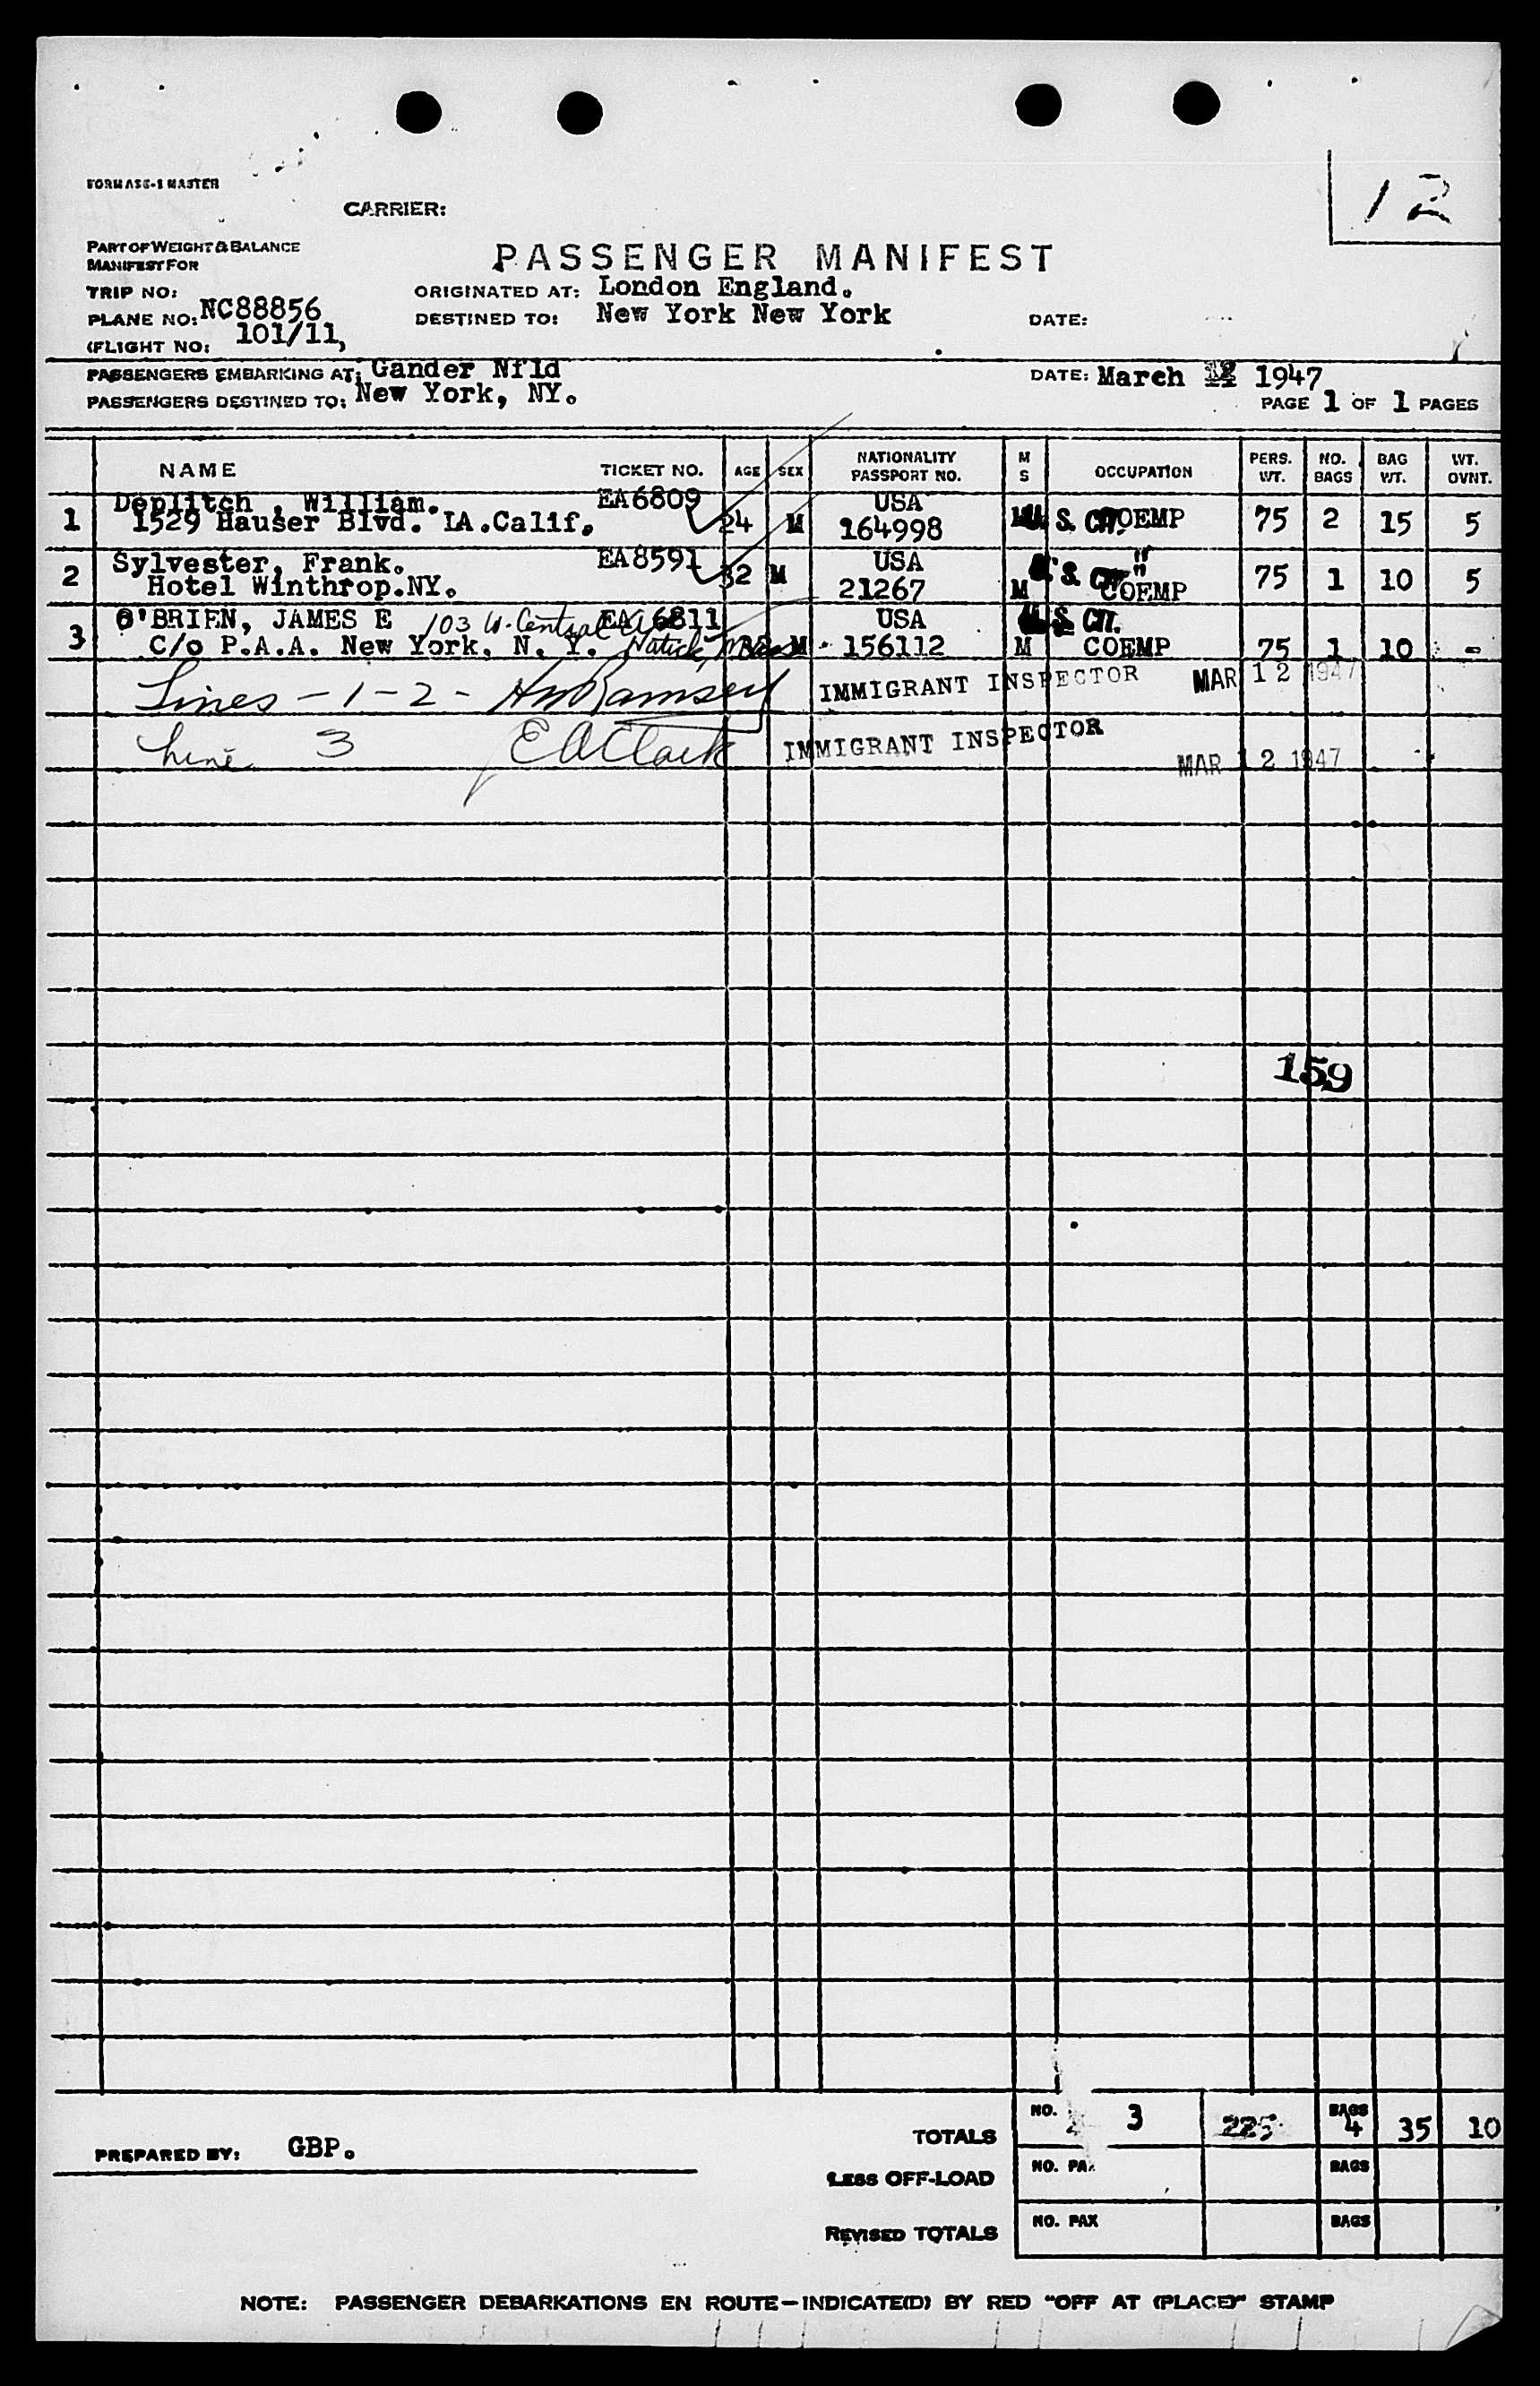 12
FORM ASG-1 MASTER
CARRIER:
PART OF WEIGHT & BALANCE
MANIFEST FOR
PASSENGER MANIFEST
TRIP NO:
ORIGINATED AT: London England.
PLANE NO: NC88856
DESTINED TO: New York New York
DATE:
(FLIGHT NO: 101/11,
PASSENGERS EMBARKING AT: Gander Nf'ld
DATE: March 1947
PASSENGERS DESTINED TO: New York, NY.
PAGE 1 OF 1 PAGES
NAME TICKET NO. AGE SEX NATIONALITY PASSPORT NO. M S OCCUPATION PERS. WT. NO. BAGS BAG WT. WT. OVNT.
Deplitch , William. EA6809 USA
1 1529 Hauser Blvd. LA.Calif. 24 M 164998 M U.S. CIT. COEMP 75 2 15 5
Sylvester, Frank. EA8591 USA "
2 Hotel Winthrop.NY. 32 M 21267 M U.S. CIT. " COEMP 75 1 10 5
O'BRIEN, JAMES E 103 W. Central EA 6811 USA U.S. CIT.
3 C/o P.A.A. New York, N. Y. Natick, Mass M 156112 M COEMP 75 1 10 -
Lines - 1 - 2 - HmRamsey IMMIGRANT INSPECTOR MAR 12 1947
Line 3 EAClark IMMIGRANT INSPECTOR MAR 12 1947
159
TOTALS NO. 3 225 BAGS 4 35 10
PREPARED BY: GBP.
LESS OFF-LOAD NO. PAX BAGS
REVISED TOTALS NO. PAX BAGS
NOTE: PASSENGER DEBARKATIONS EN ROUTE—INDICATE(D) BY RED "OFF AT (PLACE)" STAMP